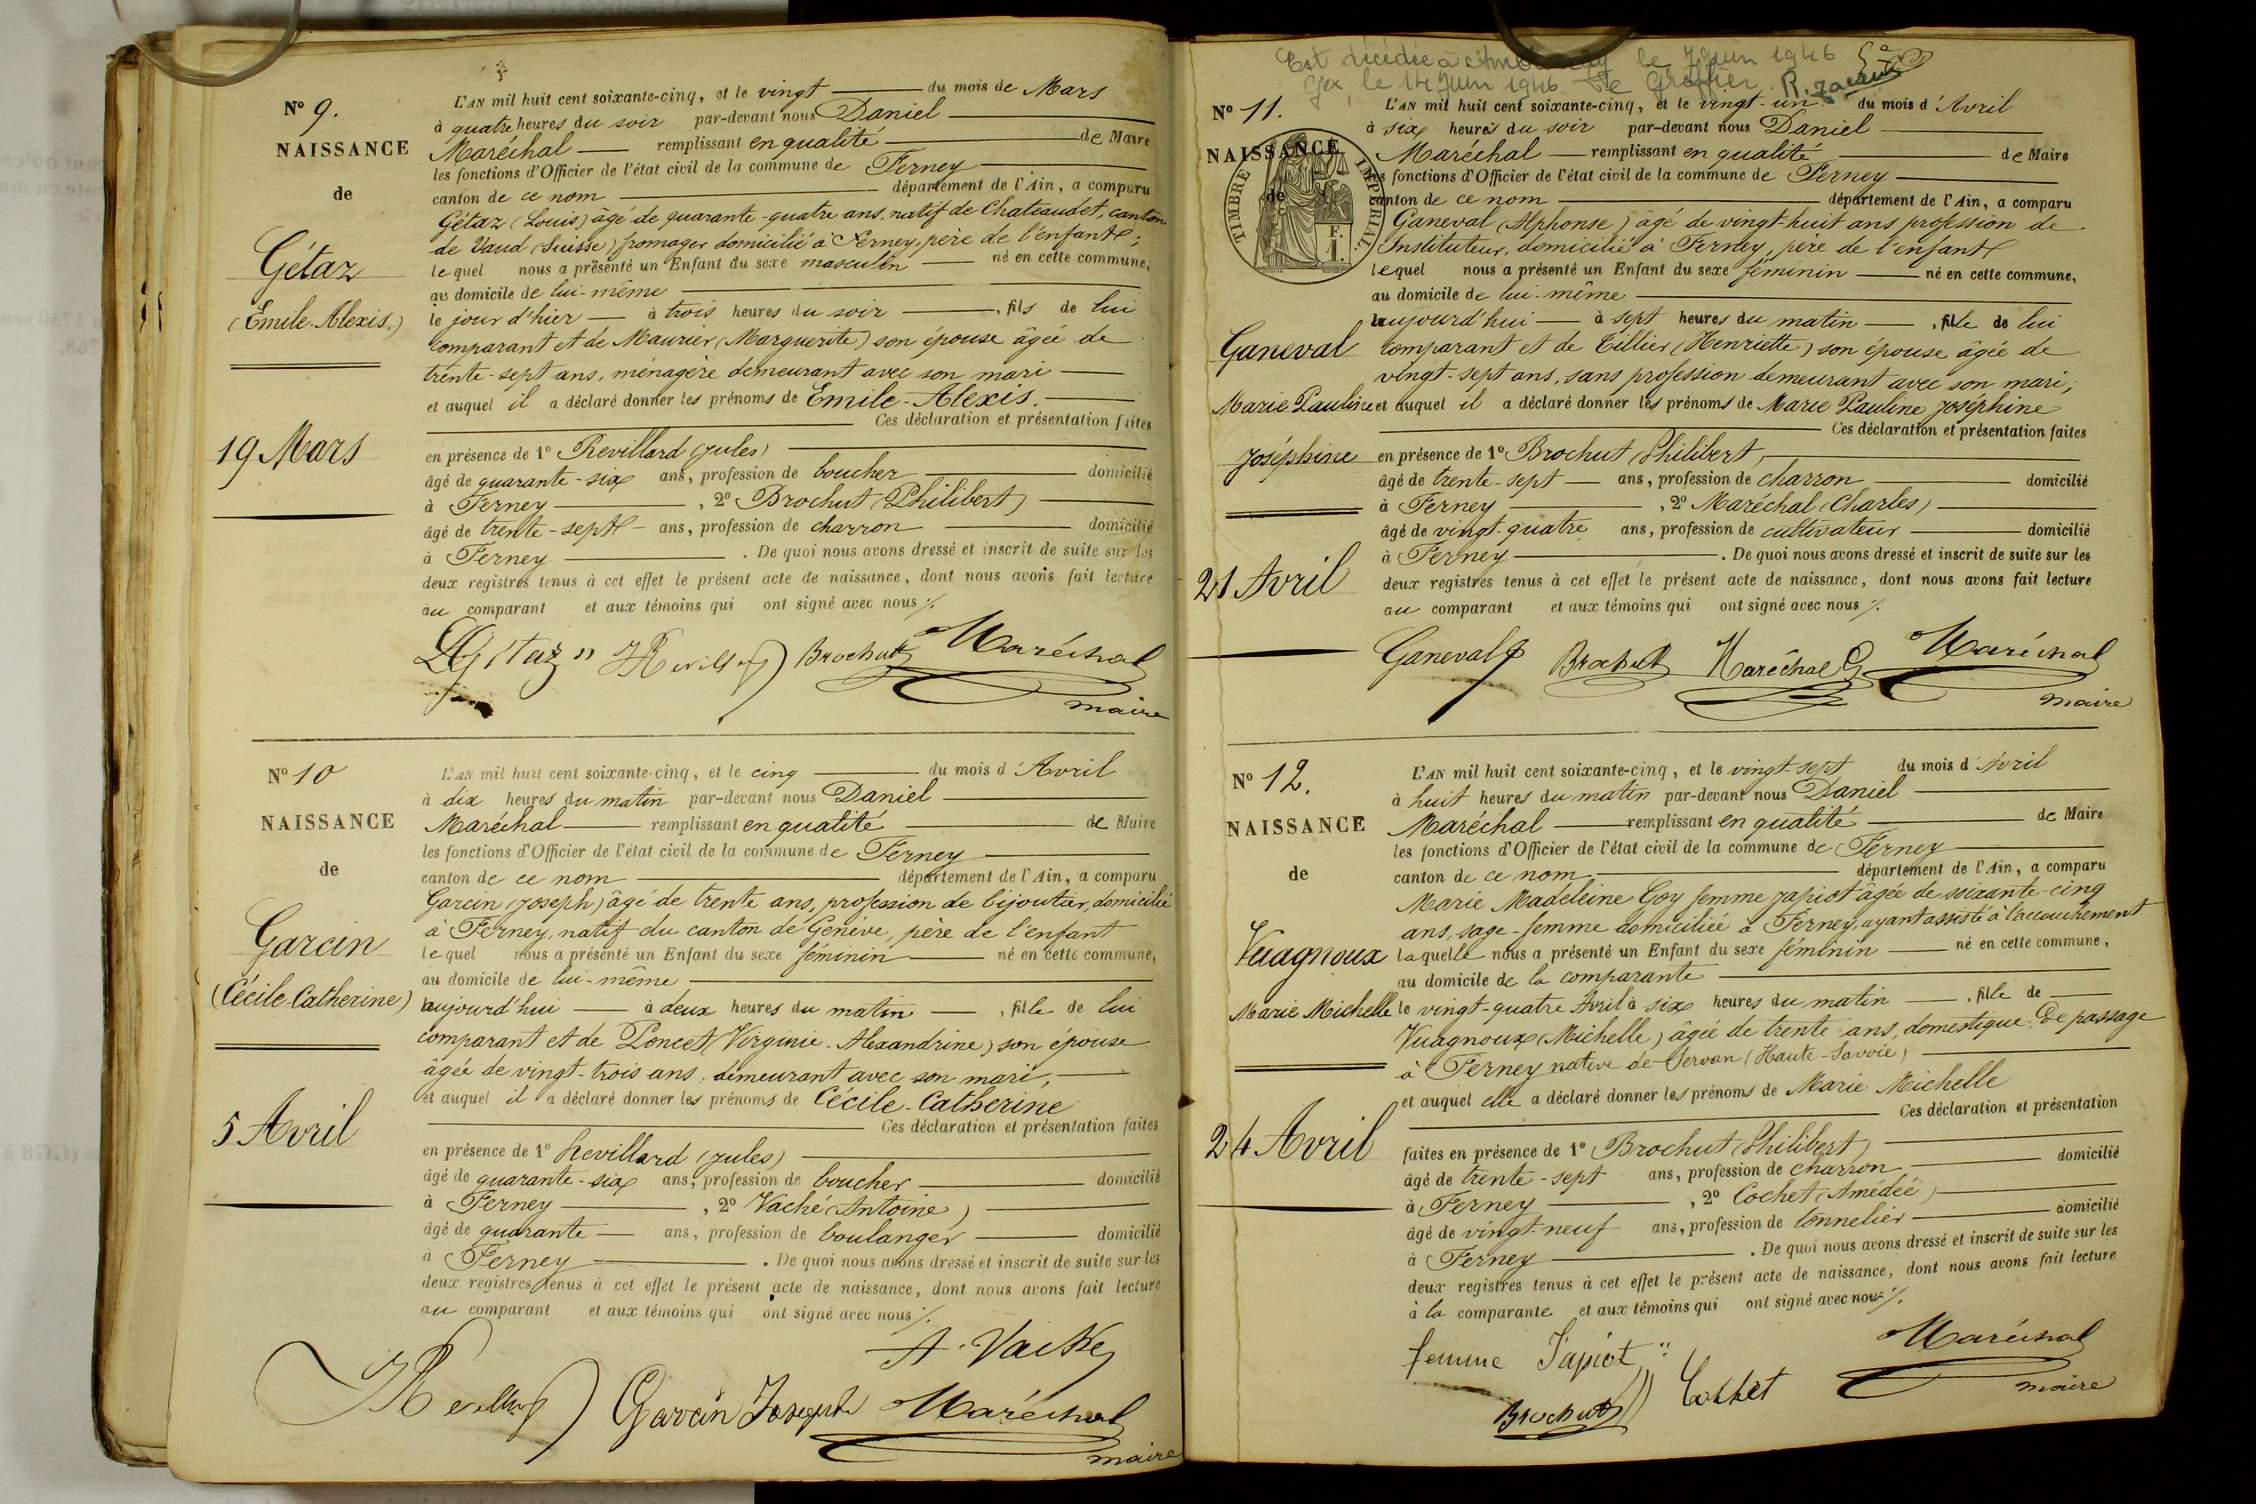 Nº 9.
NAISSANCE
de
Gétaz
(Emile-Alexis.)
19 Mars
L'AN mil huit cent soixante-cinq, et le vingt du mois de Mars
à quatre heures du soir par-devant nous Daniel
Maréchal remplissant en qualité de Maire
les fonctions d'Officier de l'état civil de la commune de Ferney
canton de ce nom département de l'Ain, a comparu
Gétaz (Louis) âgé de quarante-quatre ans, natif de Chateaudet, canton
de Vaud (Suisse) fromager domicilié à Ferney, père de l'enfant;
lequel nous a présenté un Enfant du sexe masculin né en cette commune,
au domicile de lui-même
le jour d'hier à trois heures du soir, fils de lui
comparant et de Maurier (Marguerite) son épouse âgée de
trente-sept ans, ménagère demeurant avec son mari
et auquel il a déclaré donner les prénoms de Emile-Alexis.
Ces déclaration et présentation faites
en présence de 1º Revillard (Jules)
âgé de quarante-six ans, profession de boucher domicilié
à Ferney, 2º Brochut (Philibert)
âgé de trente-sept ans, profession de charron domicilié
à Ferney. De quoi nous avons dressé et inscrit de suite sur les
deux registres tenus à cet effet le présent acte de naissance, dont nous avons fait lecture
au comparant et aux témoins qui ont signé avec nous ./.
Brochut Maréchal
maire
Nº 10
NAISSANCE
de
Garcin
(Cécile-Catherine)
5 Avril
L'AN mil huit cent soixante-cinq, et le cinq du mois d'Avril
à dix heures du matin par-devant nous Daniel
Maréchal remplissant en qualité de Maire
les fonctions d'Officier de l'état civil de la commune de Ferney
canton de ce nom département de l'Ain, a comparu
Garcin (Joseph) âgé de trente ans, profession de bijoutier, domicilié
à Ferney, natif du canton de Genève, père de l'enfant
lequel nous a présenté un Enfant du sexe féminin né en cette commune,
au domicile de lui-même
aujourd'hui à deux heures du matin, fille de lui
comparant et de Poncet (Virginie-Alexandrine) son épouse
âgée de vingt-trois ans, demeurant avec son mari,
et auquel il a déclaré donner les prénoms de Cécile-Catherine
Ces déclaration et présentation faites
en présence de 1º Revillard (Jules)
âgé de quarante-six ans, profession de boucher domicilié
à Ferney, 2º Vaché (Antoine)
âgé de quarante ans, profession de boulanger domicilié
à Ferney. De quoi nous avons dressé et inscrit de suite sur les
deux registres tenus à cet effet le présent acte de naissance, dont nous avons fait lecture
au comparant et aux témoins qui ont signé avec nous ./.
A. Vaché
Garcin Joseph Maréchal
maire
Est décédée à le 7 Juin 1946
Gex, le 14 Juin 1946. Le Greffier.
Nº 11.
NAISSANCE
de
TIMBRE IMPÉRIAL.
F.
1.
Ganeval
Marie Pauline
Joséphine
21 Avril
L'AN mil huit cent soixante-cinq, et le vingt-un du mois d'Avril
à six heures du soir par-devant nous Daniel
Maréchal remplissant en qualité de Maire
les fonctions d'Officier de l'état civil de la commune de Ferney
canton de ce nom département de l'Ain, a comparu
Ganeval (Alphonse) âgé de vingt-huit ans profession de
Instituteur, domicilié à Ferney, père de l'enfant
lequel nous a présenté un Enfant du sexe féminin né en cette commune,
au domicile de lui-même
aujourd'hui à sept heures du matin, fille de lui
comparant et de Tillier (Henriette) son épouse âgée de
vingt-sept ans, sans profession demeurant avec son mari;
et auquel il a déclaré donner les prénoms de Marie Pauline Joséphine
Ces déclaration et présentation faites
en présence de 1º Brochut (Philibert)
âgé de trente-sept ans, profession de charron domicilié
à Ferney, 2º Maréchal (Charles)
âgé de vingt-quatre ans, profession de cultivateur domicilié
à Ferney. De quoi nous avons dressé et inscrit de suite sur les
deux registres tenus à cet effet le présent acte de naissance, dont nous avons fait lecture
au comparant et aux témoins qui ont signé avec nous ./.
Ganeval Brochut Maréchal C Maréchal
maire
Nº 12.
NAISSANCE
de
Vuagnoux
Marie Michelle
24 Avril
L'AN mil huit cent soixante-cinq, et le vingt-sept du mois d'Avril
à huit heures du matin par-devant nous Daniel
Maréchal remplissant en qualité de Maire
les fonctions d'Officier de l'état civil de la commune de Ferney
canton de ce nom département de l'Ain, a comparu
Marie Madeleine Goy femme Japiot âgée de soixante-cinq
ans, sage-femme domiciliée à Ferney, ayant assisté à l'accouchement
laquelle nous a présenté un Enfant du sexe féminin né en cette commune,
au domicile de la comparante
le vingt-quatre Avril à six heures du matin, fille de
Vuagnoux (Michelle) âgée de trente ans, domestique de passage
à Ferney native de Servan (Haute-Savoie)
et auquel elle a déclaré donner les prénoms de Marie Michelle
Ces déclaration et présentation
faites en présence de 1º Brochut (Philibert) domicilié
âgé de trente-sept ans, profession de charron
à Ferney, 2º Cochet (Amédée)
âgé de vingt-neuf ans, profession de tonnelier domicilié
à Ferney. De quoi nous avons dressé et inscrit de suite sur les
deux registres tenus à cet effet le présent acte de naissance, dont nous avons fait lecture
à la comparante et aux témoins qui ont signé avec nous ./.
femme Japiot Maréchal
Brochut Cochet maire